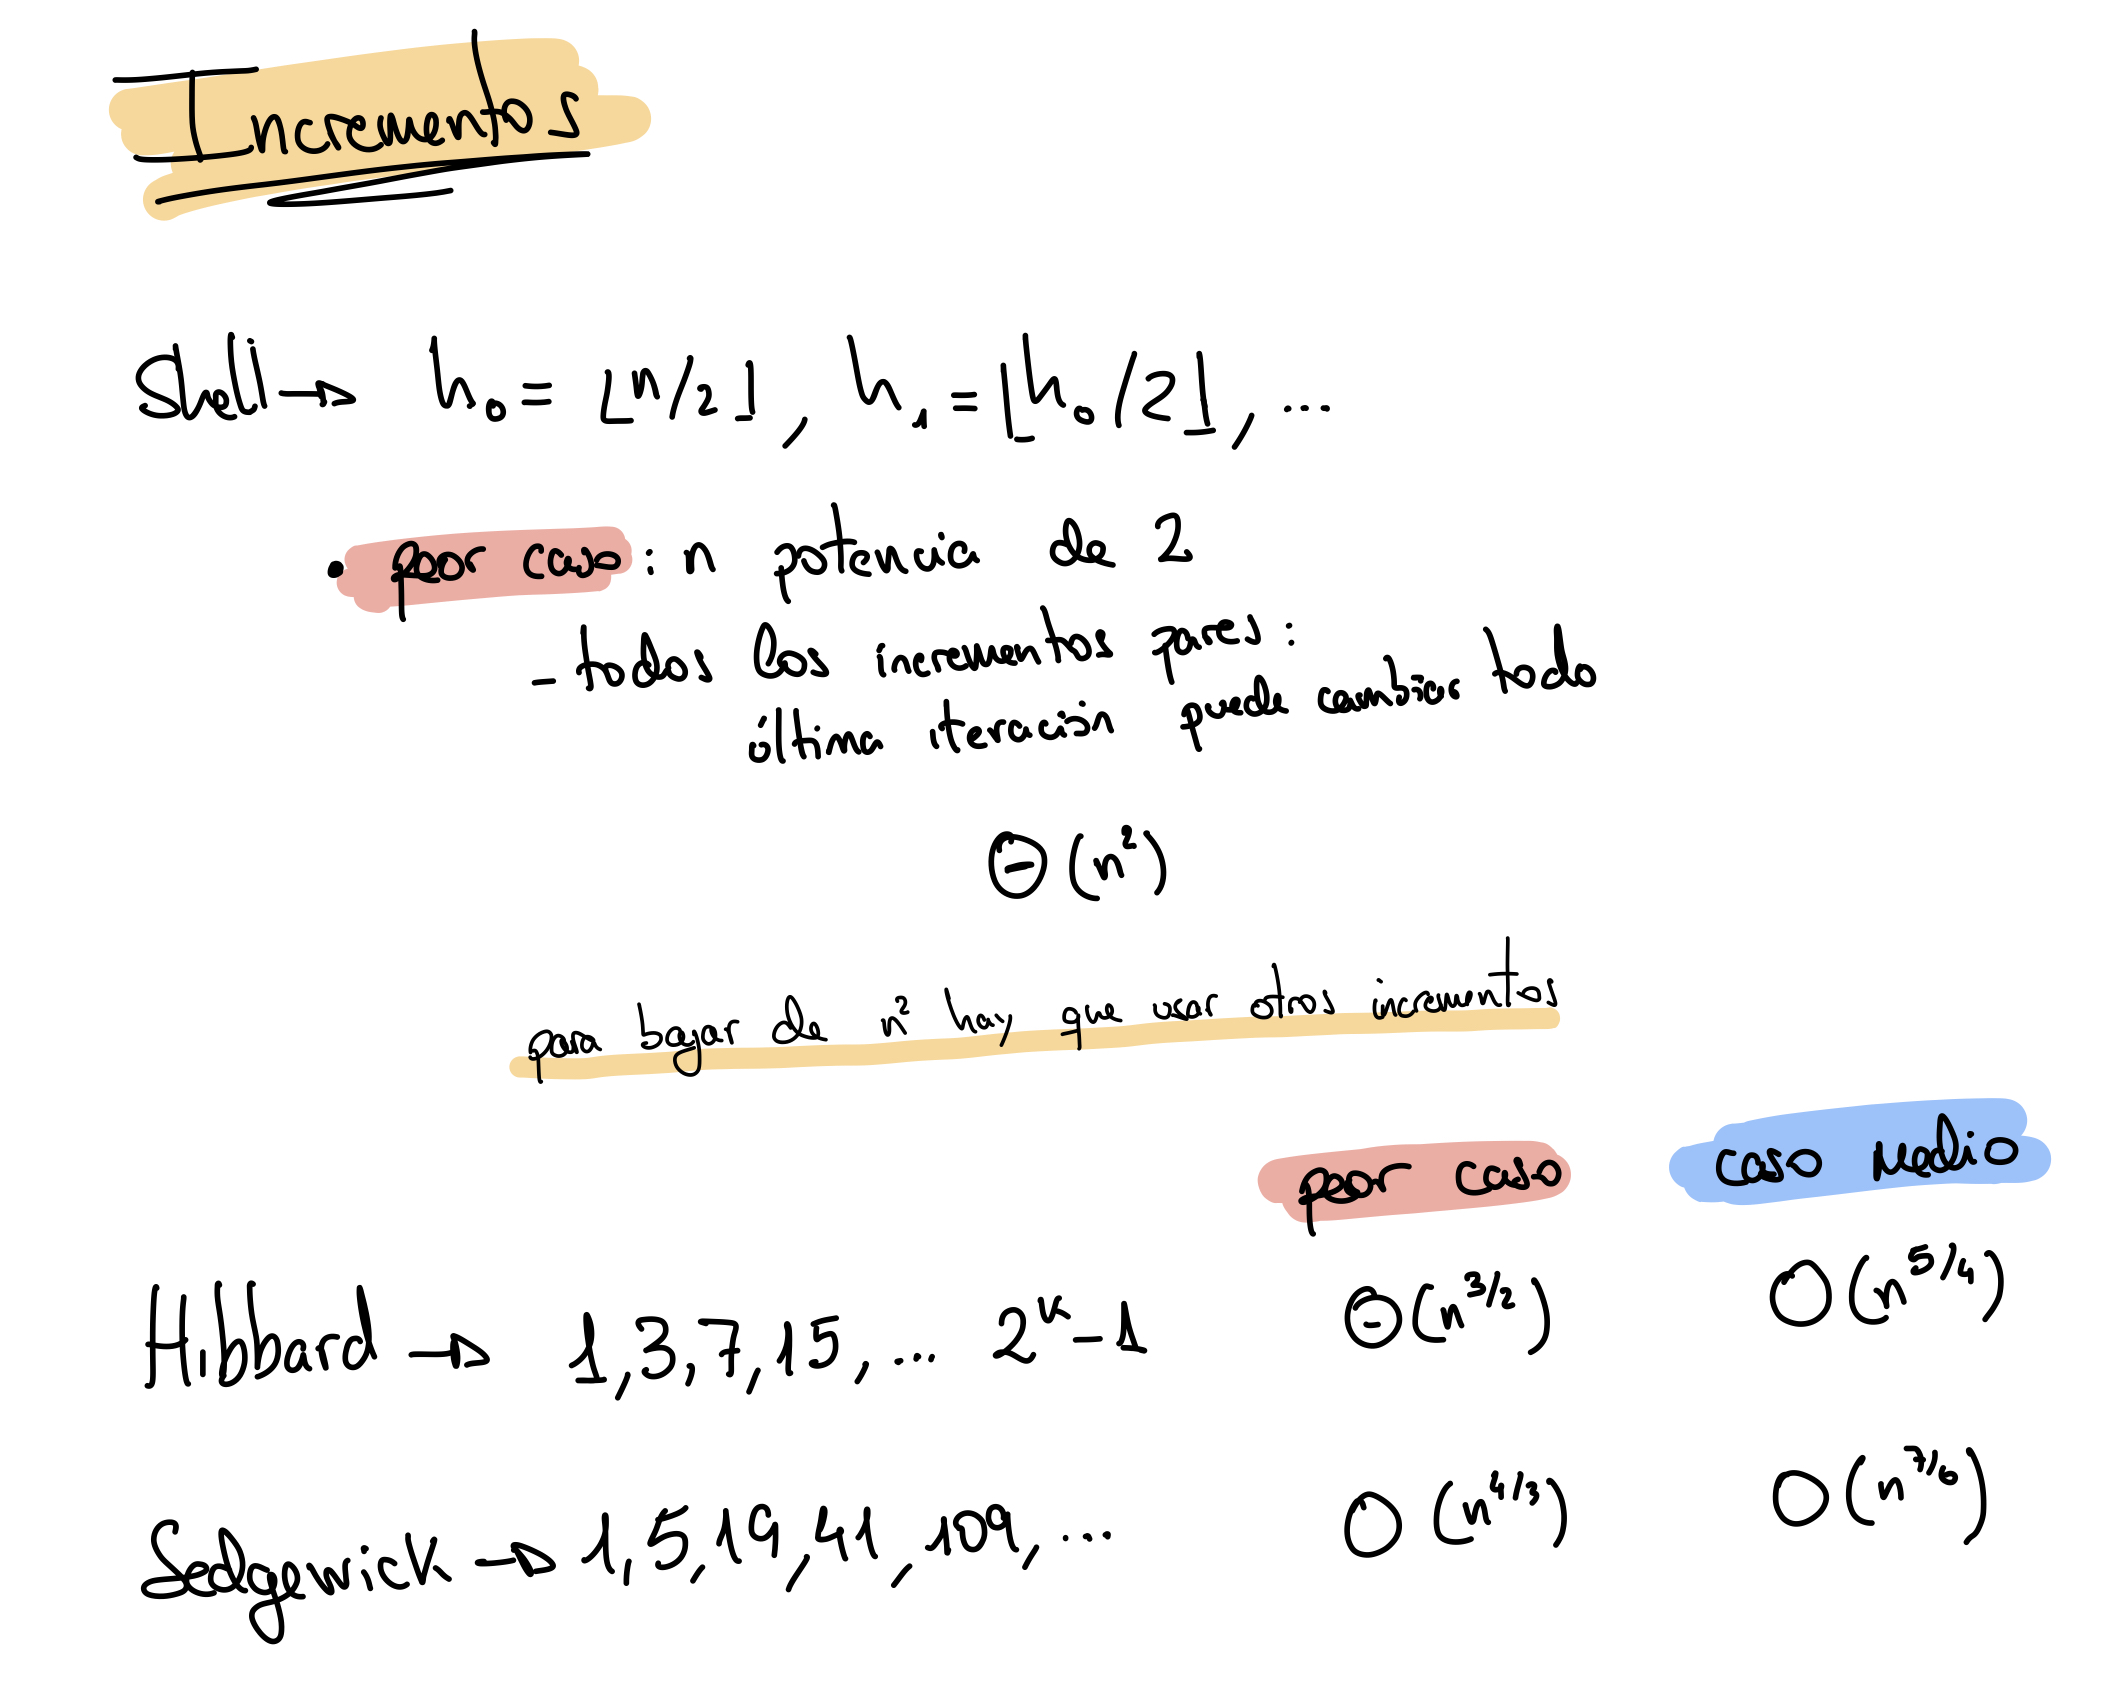 Incrementos
Shell → h₀ = ⌊n/2⌋, h₁ = ⌊h₀/2⌋, ...
• peor caso : n potencia de 2
- todos los incrementos pares :
última iteración puede cambiar todo
Θ(n²)
para bajar de n² hay que usar otros incrementos
peor caso caso medio
Hibbard → 1, 3, 7, 15, ... 2ᵏ-1 Θ(n^3/2) O(n^5/4)
Sedgewick → 1, 5, 19, 41, 109, ... O(n^4/3) O(n^7/6)